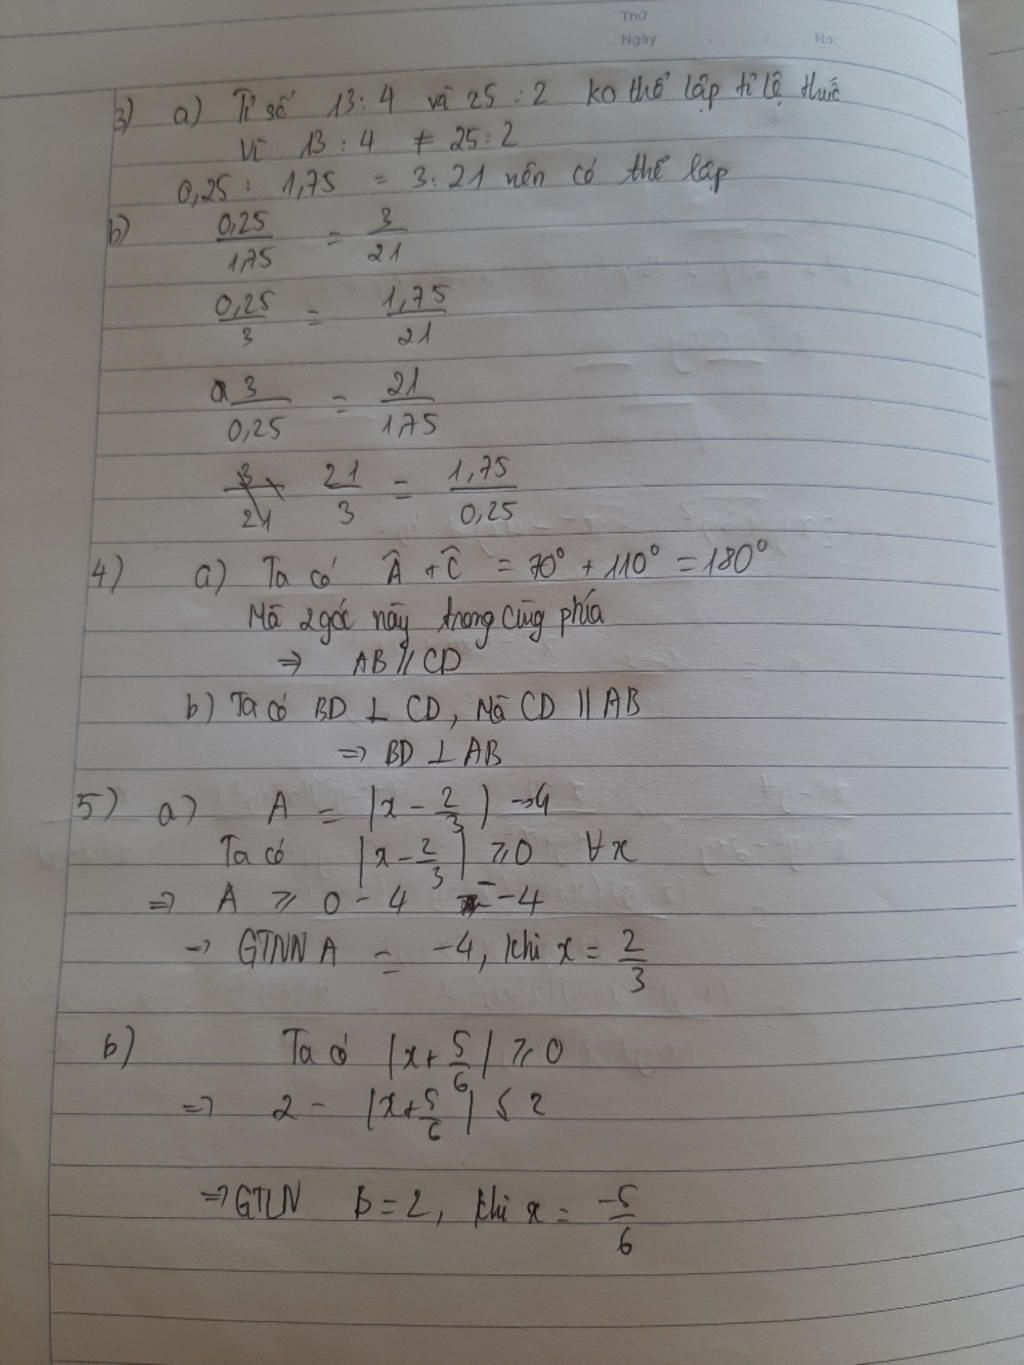 Thứ
Ngày No.
3) a) Tỉ số 13 : 4 và 25 : 2 ko thể lập tỉ lệ thức
Vì 13 : 4 ≠ 25 : 2
0,25 : 1,75 = 3 : 21 nên có thể lập
b) 0,25/1,75 = 3/21
0,25/3 = 1,75/21
3/0,25 = 21/1,75
21/3 = 1,75/0,25
4) a) Ta có Â + Ĉ = 70° + 110° = 180°
Mà 2 góc này trong cùng phía
=> AB // CD
b) Ta có BD ⊥ CD, Mà CD // AB
=> BD ⊥ AB
5) a) A = |x - 2/3| - 4
Ta có |x - 2/3| ≥ 0 ∀x
=> A ≥ 0 - 4 = -4
=> GTNN A = -4, khi x = 2/3
b) Ta có |x + 5/6| ≥ 0
=> 2 - |x + 5/6| ≤ 2
=> GTLN B = 2, khi x = -5/6